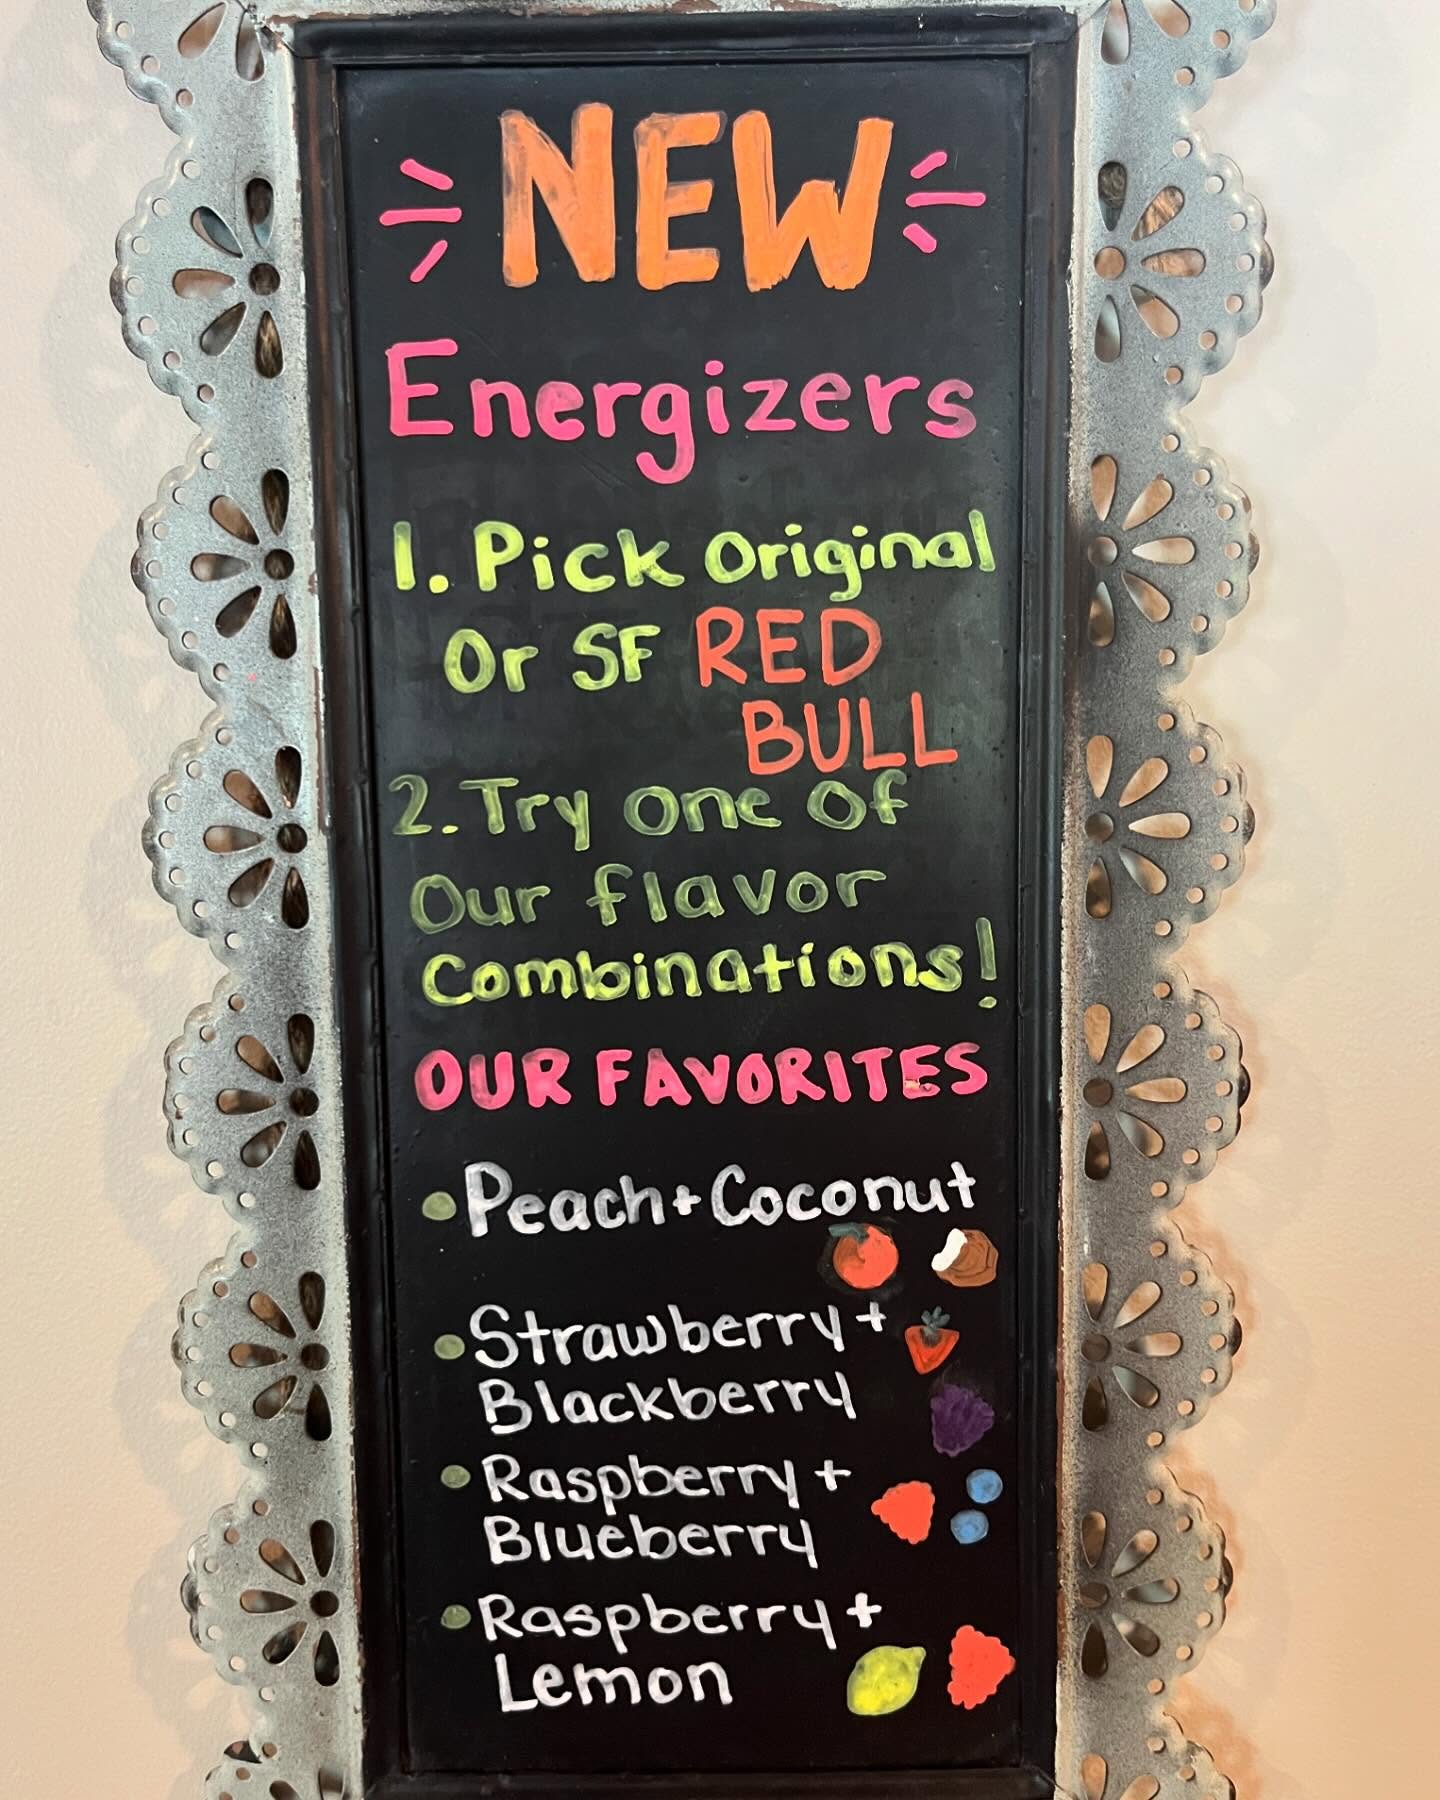 NEW
Energizers
1. Pick Original
Or SF RED
BULL
2. Try One Of
Our flavor
Combinations!
OUR FAVORITES
• Peach + Coconut
• Strawberry +
Blackberry
• Raspberry +
Blueberry
• Raspberry +
Lemon